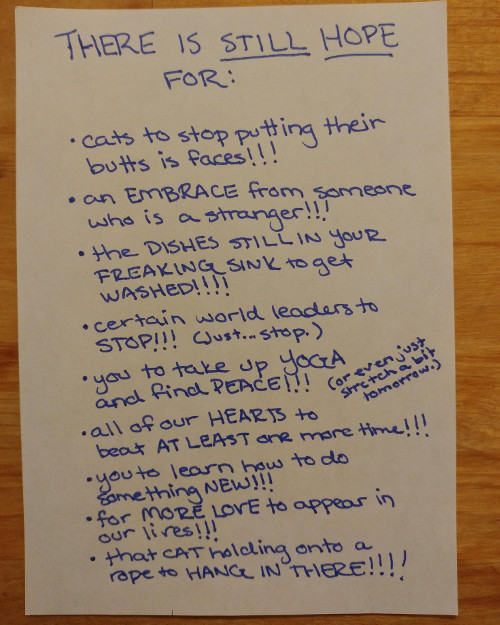 THERE IS STILL HOPE
FOR:
• cats to stop putting their
butts is faces!!!
• an EMBRACE from someone
who is a stranger!!!
• the DISHES STILL IN YOUR
FREAKING SINK to get
WASHED!!!!
• certain world leaders to
STOP!!! (Just... stop.)
• you to take up YOGA
and find PEACE!!! (or even just
stretch a bit
tomorrow.)
• all of our HEARTS to
beat AT LEAST one more time!!!
• you to learn how to do
something NEW!!!
• for MORE LOVE to appear in
our lives!!!
• that CAT holding onto a
rope to HANG IN THERE!!!!